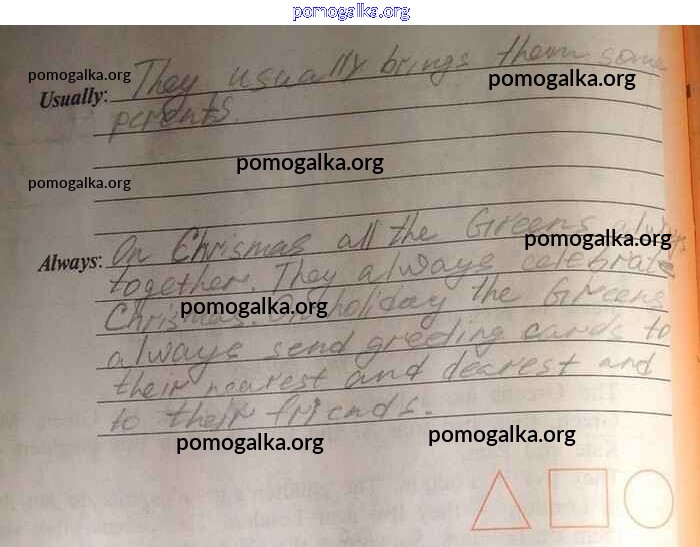 pomogalka.org
pomogalka.org
Usually: They usually brings them some
pomogalka.org
parents.
pomogalka.org
pomogalka.org
Always: On Chrismas all the Greens always
pomogalka.org
together. They always celebrate
Christmas. On holiday the Greens
pomogalka.org
always send greeting cards to
their nearest and dearest and
to their friends.
pomogalka.org
pomogalka.org